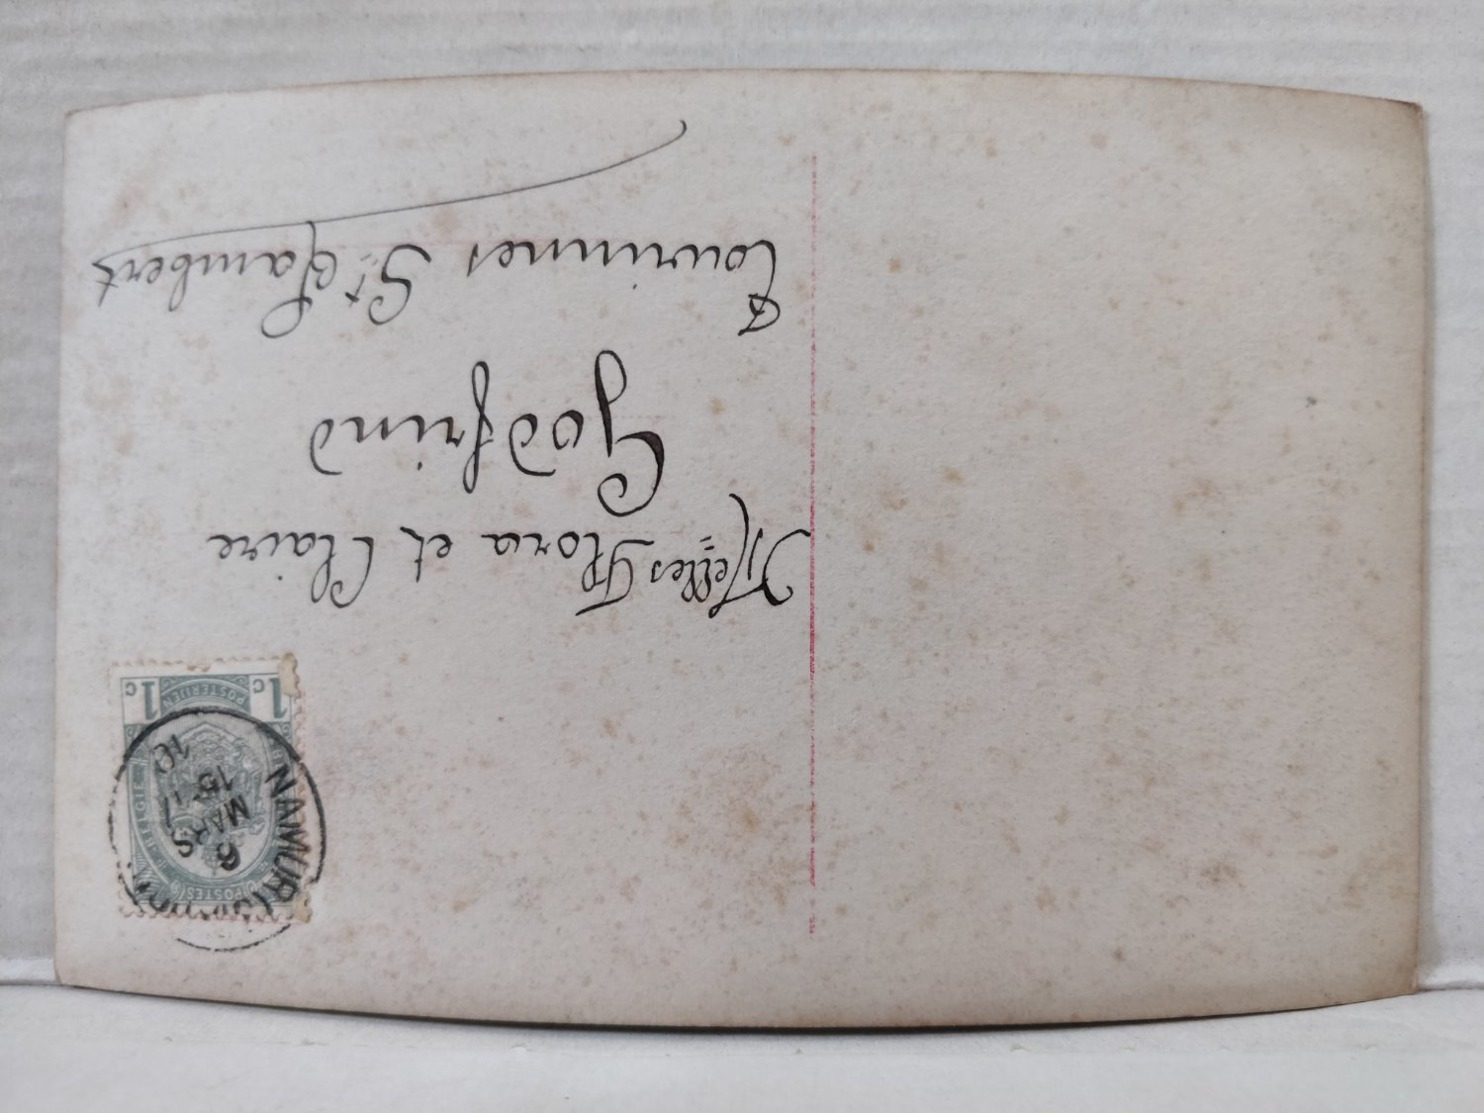 POSTES
BELGIE
POSTERIJEN
1c 1c
NAMUR
6
MARS
15-17
10
Melles Flora et Claire
Godfrind
à
Tourinnes St Lambert